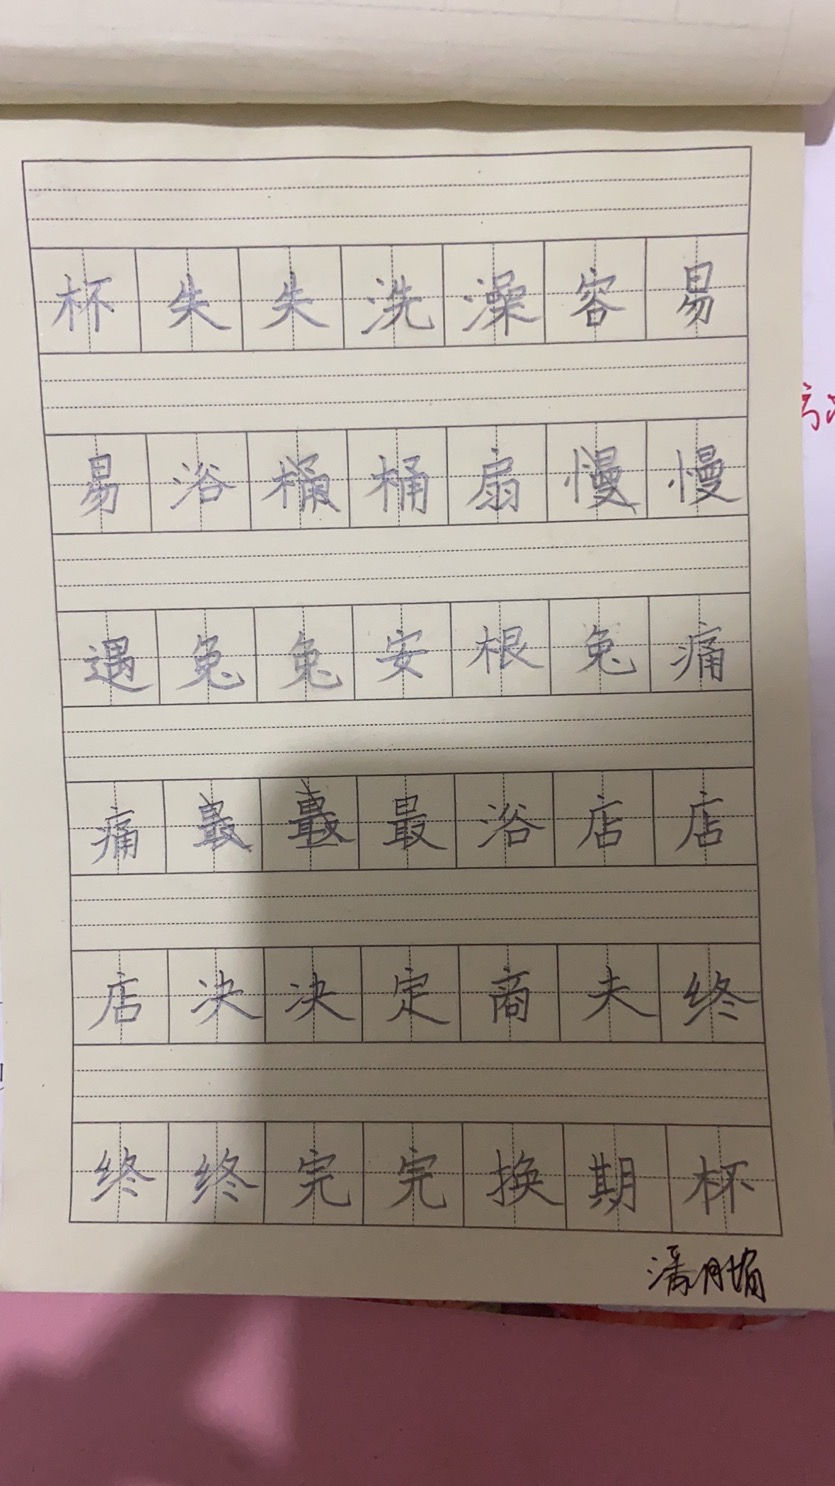 杯失失洗澡容易
易浴桶扇慢
遇兔兔安根兔痛
痛最浴店店
店决决定商夫终
终终完完换期杯